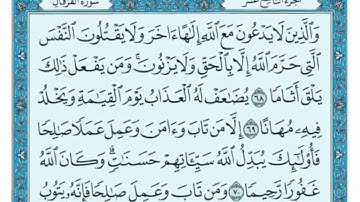 سورة الفرقان الجزء التاسع عشر
وَٱلَّذِينَ لَا يَدْعُونَ مَعَ ٱللَّهِ إِلَٰهًا ءَاخَرَ وَلَا يَقْتُلُونَ ٱلنَّفْسَ
ٱلَّتِى حَرَّمَ ٱللَّهُ إِلَّا بِٱلْحَقِّ وَلَا يَزْنُونَ ۚ وَمَن يَفْعَلْ ذَٰلِكَ
يَلْقَ أَثَامًا ٦٨ يُضَٰعَفْ لَهُ ٱلْعَذَابُ يَوْمَ ٱلْقِيَٰمَةِ وَيَخْلُدْ
فِيهِۦ مُهَانًا ٦٩ إِلَّا مَن تَابَ وَءَامَنَ وَعَمِلَ عَمَلًا صَٰلِحًا
فَأُو۟لَٰٓئِكَ يُبَدِّلُ ٱللَّهُ سَيِّـَٔاتِهِمْ حَسَنَٰتٍ ۗ وَكَانَ ٱللَّهُ
غَفُورًا رَّحِيمًا ٧٠ وَمَن تَابَ وَعَمِلَ صَٰلِحًا فَإِنَّهُۥ يَتُوبُ